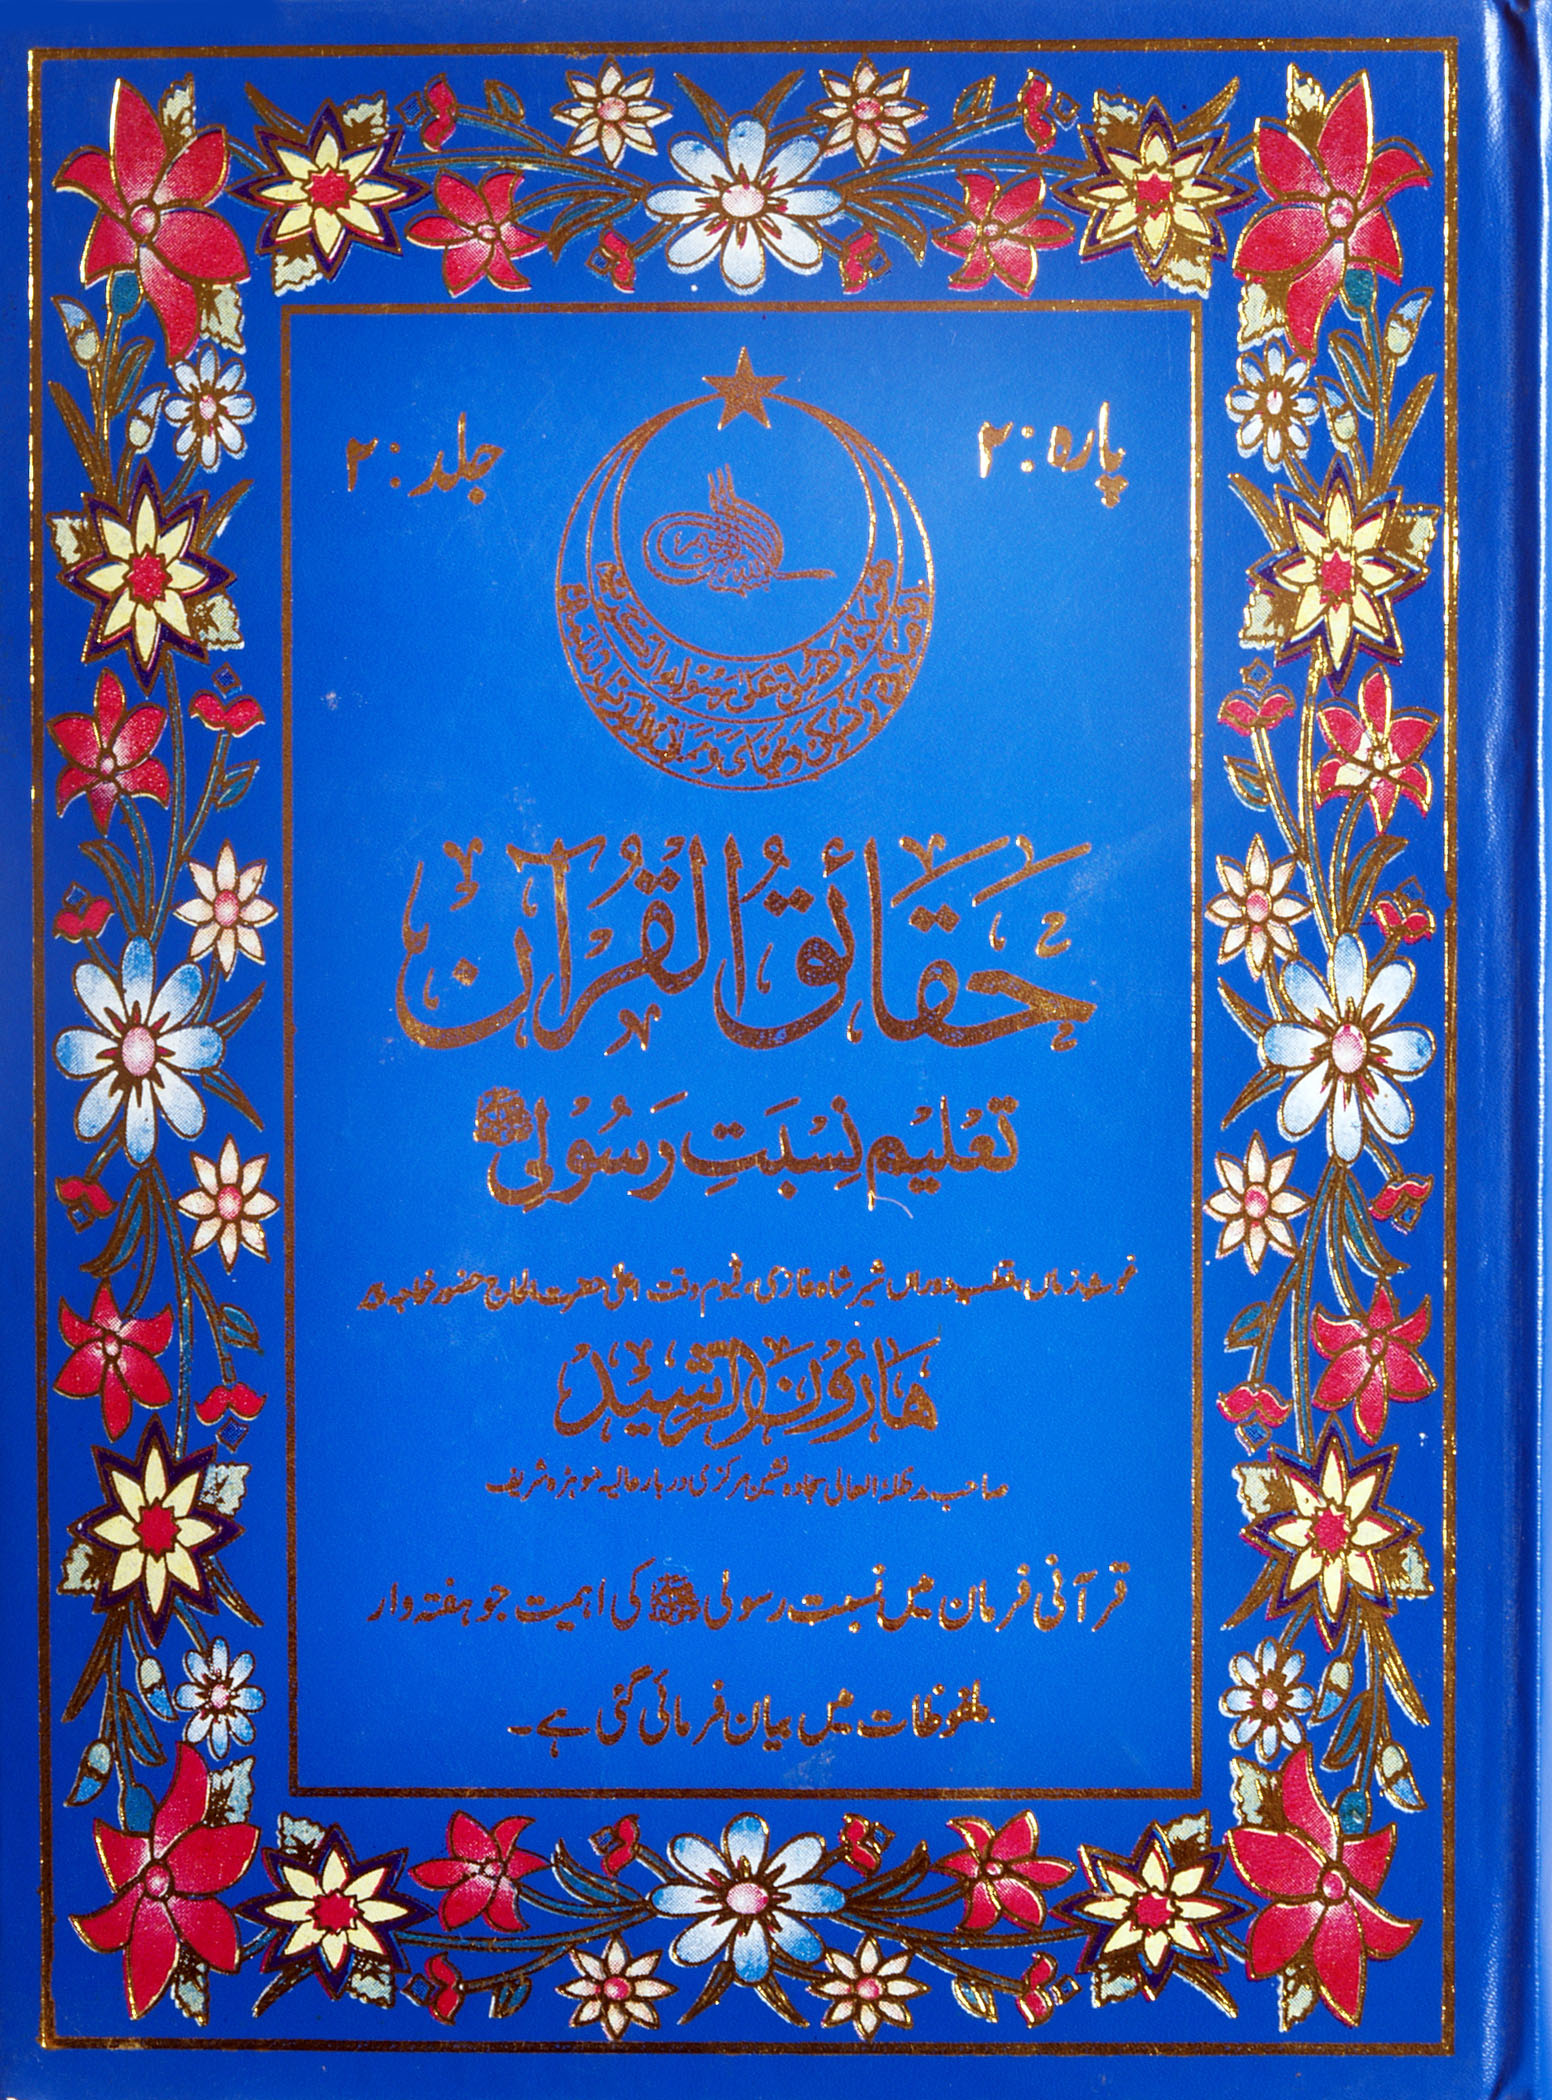 پارہ: ۲
جلد: ۲
حَقَائقُ الْقُرآن
تَعْلِیْمِ نِسْبَتِ رَسُوْلِی ﷺ
غوث زماں، قطب دوراں شیر شاہ غازی، قیوم وقت، اعلیٰ حضرت الحاج حضور خواجہ
هَارُوْنَ الرَّشِیْد
صاحب مدظلہ العالی سجادہ نشین مرکزی دربار عالیہ موہڑہ شریف
قرآنی فرمان میں نسبت رسولی ﷺ کی اہمیت جو ہفتہ وار
ملفوظات میں بیان فرمائی گئی ہے۔